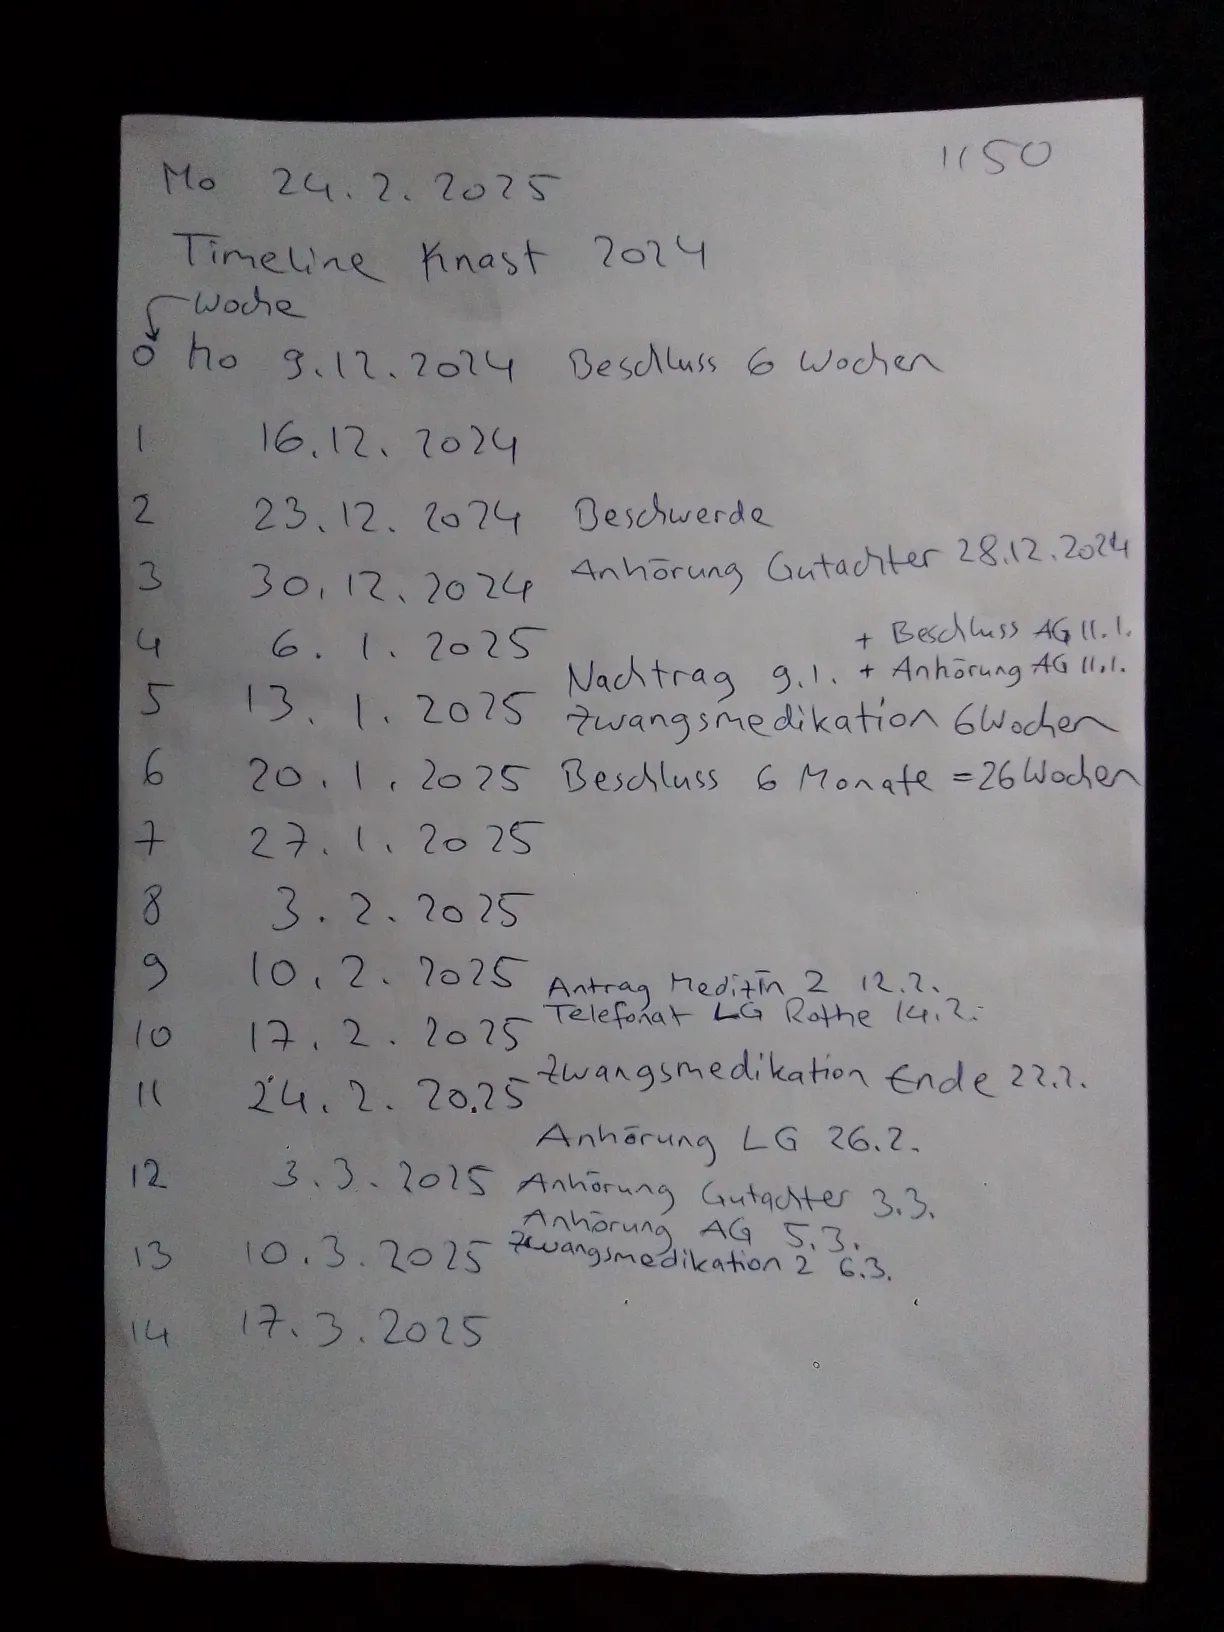 Mo 24.2.2025 1150
Timeline Knast 2024
Woche
0 Mo 9.12.2024 Beschluss 6 Wochen
1 16.12.2024
2 23.12.2024 Beschwerde
3 30.12.2024 Anhörung Gutachter 28.12.2024
+ Beschluss AG 11.1.
4 6.1.2025
Nachtrag 9.1. + Anhörung AG 11.1.
5 13.1.2025 Zwangsmedikation 6 Wochen
6 20.1.2025 Beschluss 6 Monate = 26 Wochen
7 27.1.2025
8 3.2.2025
9 10.2.2025 Antrag Medizin 2 12.2.
Telefonat LG Rothe 14.2.
10 17.2.2025
Zwangsmedikation Ende 22.2.
11 24.2.2025
Anhörung LG 26.2.
12 3.3.2025 Anhörung Gutachter 3.3.
Anhörung AG 5.3.
13 10.3.2025 Zwangsmedikation 2 6.3.
14 17.3.2025